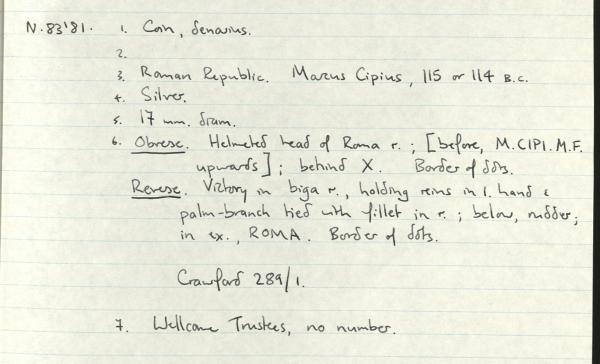 N.83'81. 1. Coin, denarius.
2.
3. Roman Republic. Marcus Cipius, 115 or 114 B.C.
4. Silver.
5. 17 mm. diam.
6. Obverse. Helmeted head of Roma r.; [before, M.CIPI.M.F.
upwards]; behind X. Border of dots.
Reverse. Victory in biga r., holding reins in l. hand &
palm-branch tied with fillet in r.; below, rudder;
in ex., ROMA. Border of dots.
Crawford 289/1.
7. Wellcome Trustees, no number.